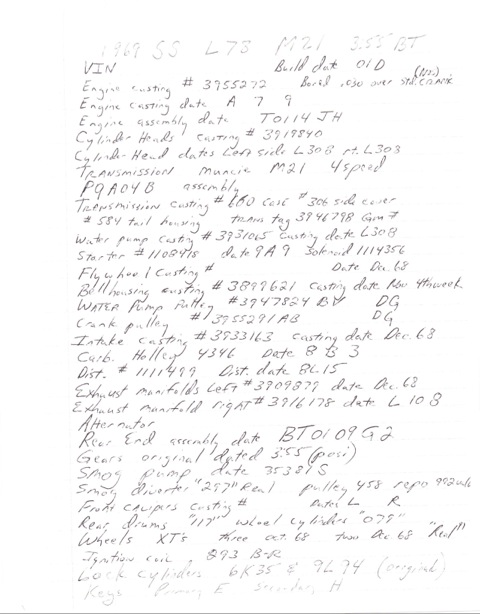 1969 SS L78 M21 3.55 BT
VIN Build date 01D
Engine casting # 3955272 Bored .030 over std. crank
Engine casting date A 7 9
Engine assembly date T0114JH
Cylinder Heads casting # 3919840
Cylinder Head dates Left side L308 rt. L303
TRANSMISSION muncie M21 4 speed
P9A04B assembly
TRANSMISSION Casting # 660 case # 306 side cover
# 584 tail housing TRANS tag 3946798 Gm #
Water pump casting # 3931065 casting date L308
Starter # 1108418 date 9A9 Solenoid 1114356
Flywheel Casting # Date Dec. 68
Bellhousing casting # 3899621 casting date Nov 4th week
WATER Pump Pulley # 3947824 BV DG
Crank pulley # 3955291AB DG
Intake casting # 3933163 casting date Dec. 68
Carb. Holley 4346 Date 8 B 3
Dist. # 1111499 Dist. date 8L15
Exhaust manifolds Left # 3909879 date Dec. 68
Exhaust manifold right # 3916178 date L 10 8
Alternator
Rear End assembly date BT0109G2
Gears original dated 3:55 (posi)
Smog pump date 35381S
Smog diverter "297" Real pulley 458 repo
Front calipers casting # Dates L R
Rear drums "117" wheel cylinders "079"
Wheels XT's three oct. 68 two Dec. 68 "Real"
Ignition coil 293 B-R
Lock cylinders 6K35 & 9L94 (original)
Keys Primary E Secondary H